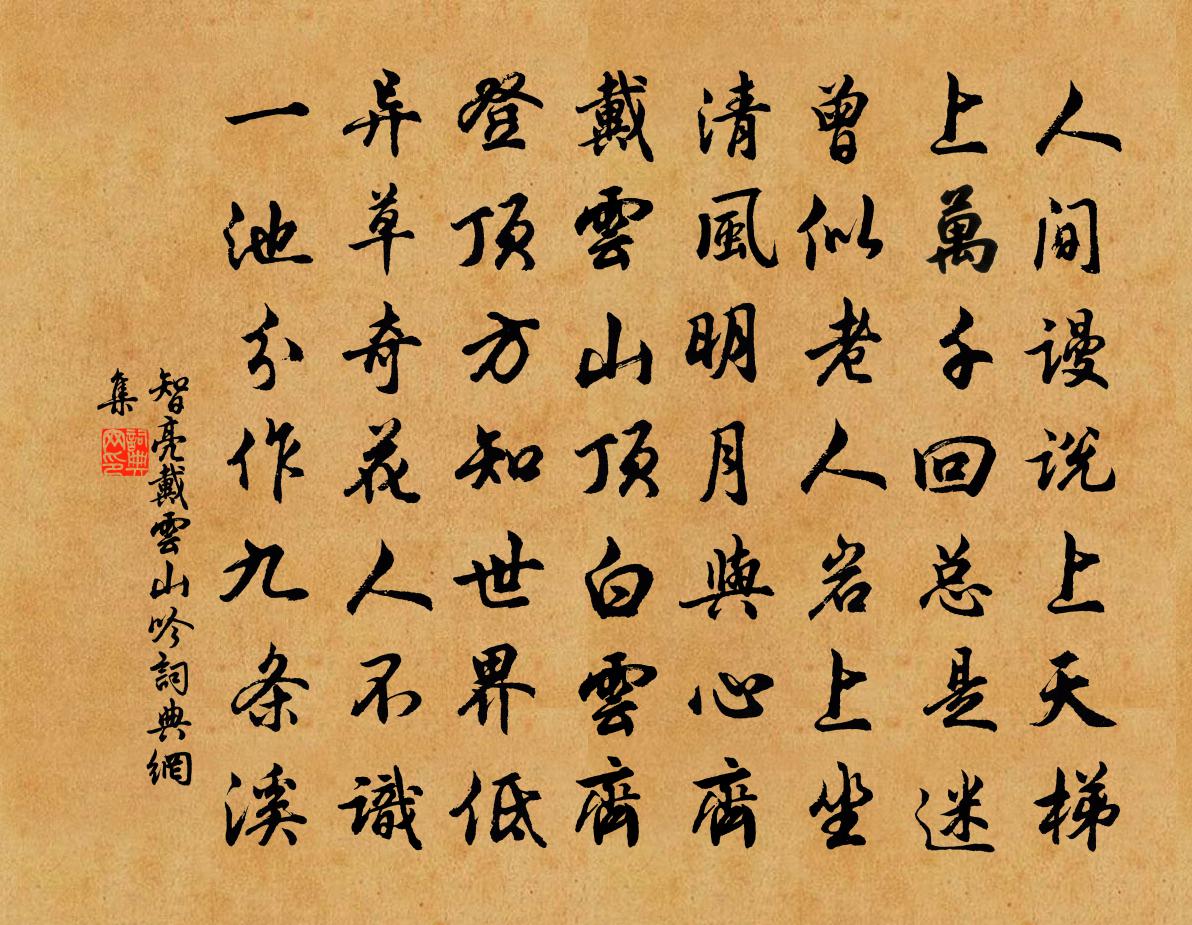 人間謾説上天梯
上萬千回总是迷
曾似老人岩上坐
清風明月與心齊
戴雲山頂白雲齊
登頂方知世界低
异草奇花人不識
一池分作九条溪
智亮戴雲山吟詞典網
集
詞典
网印